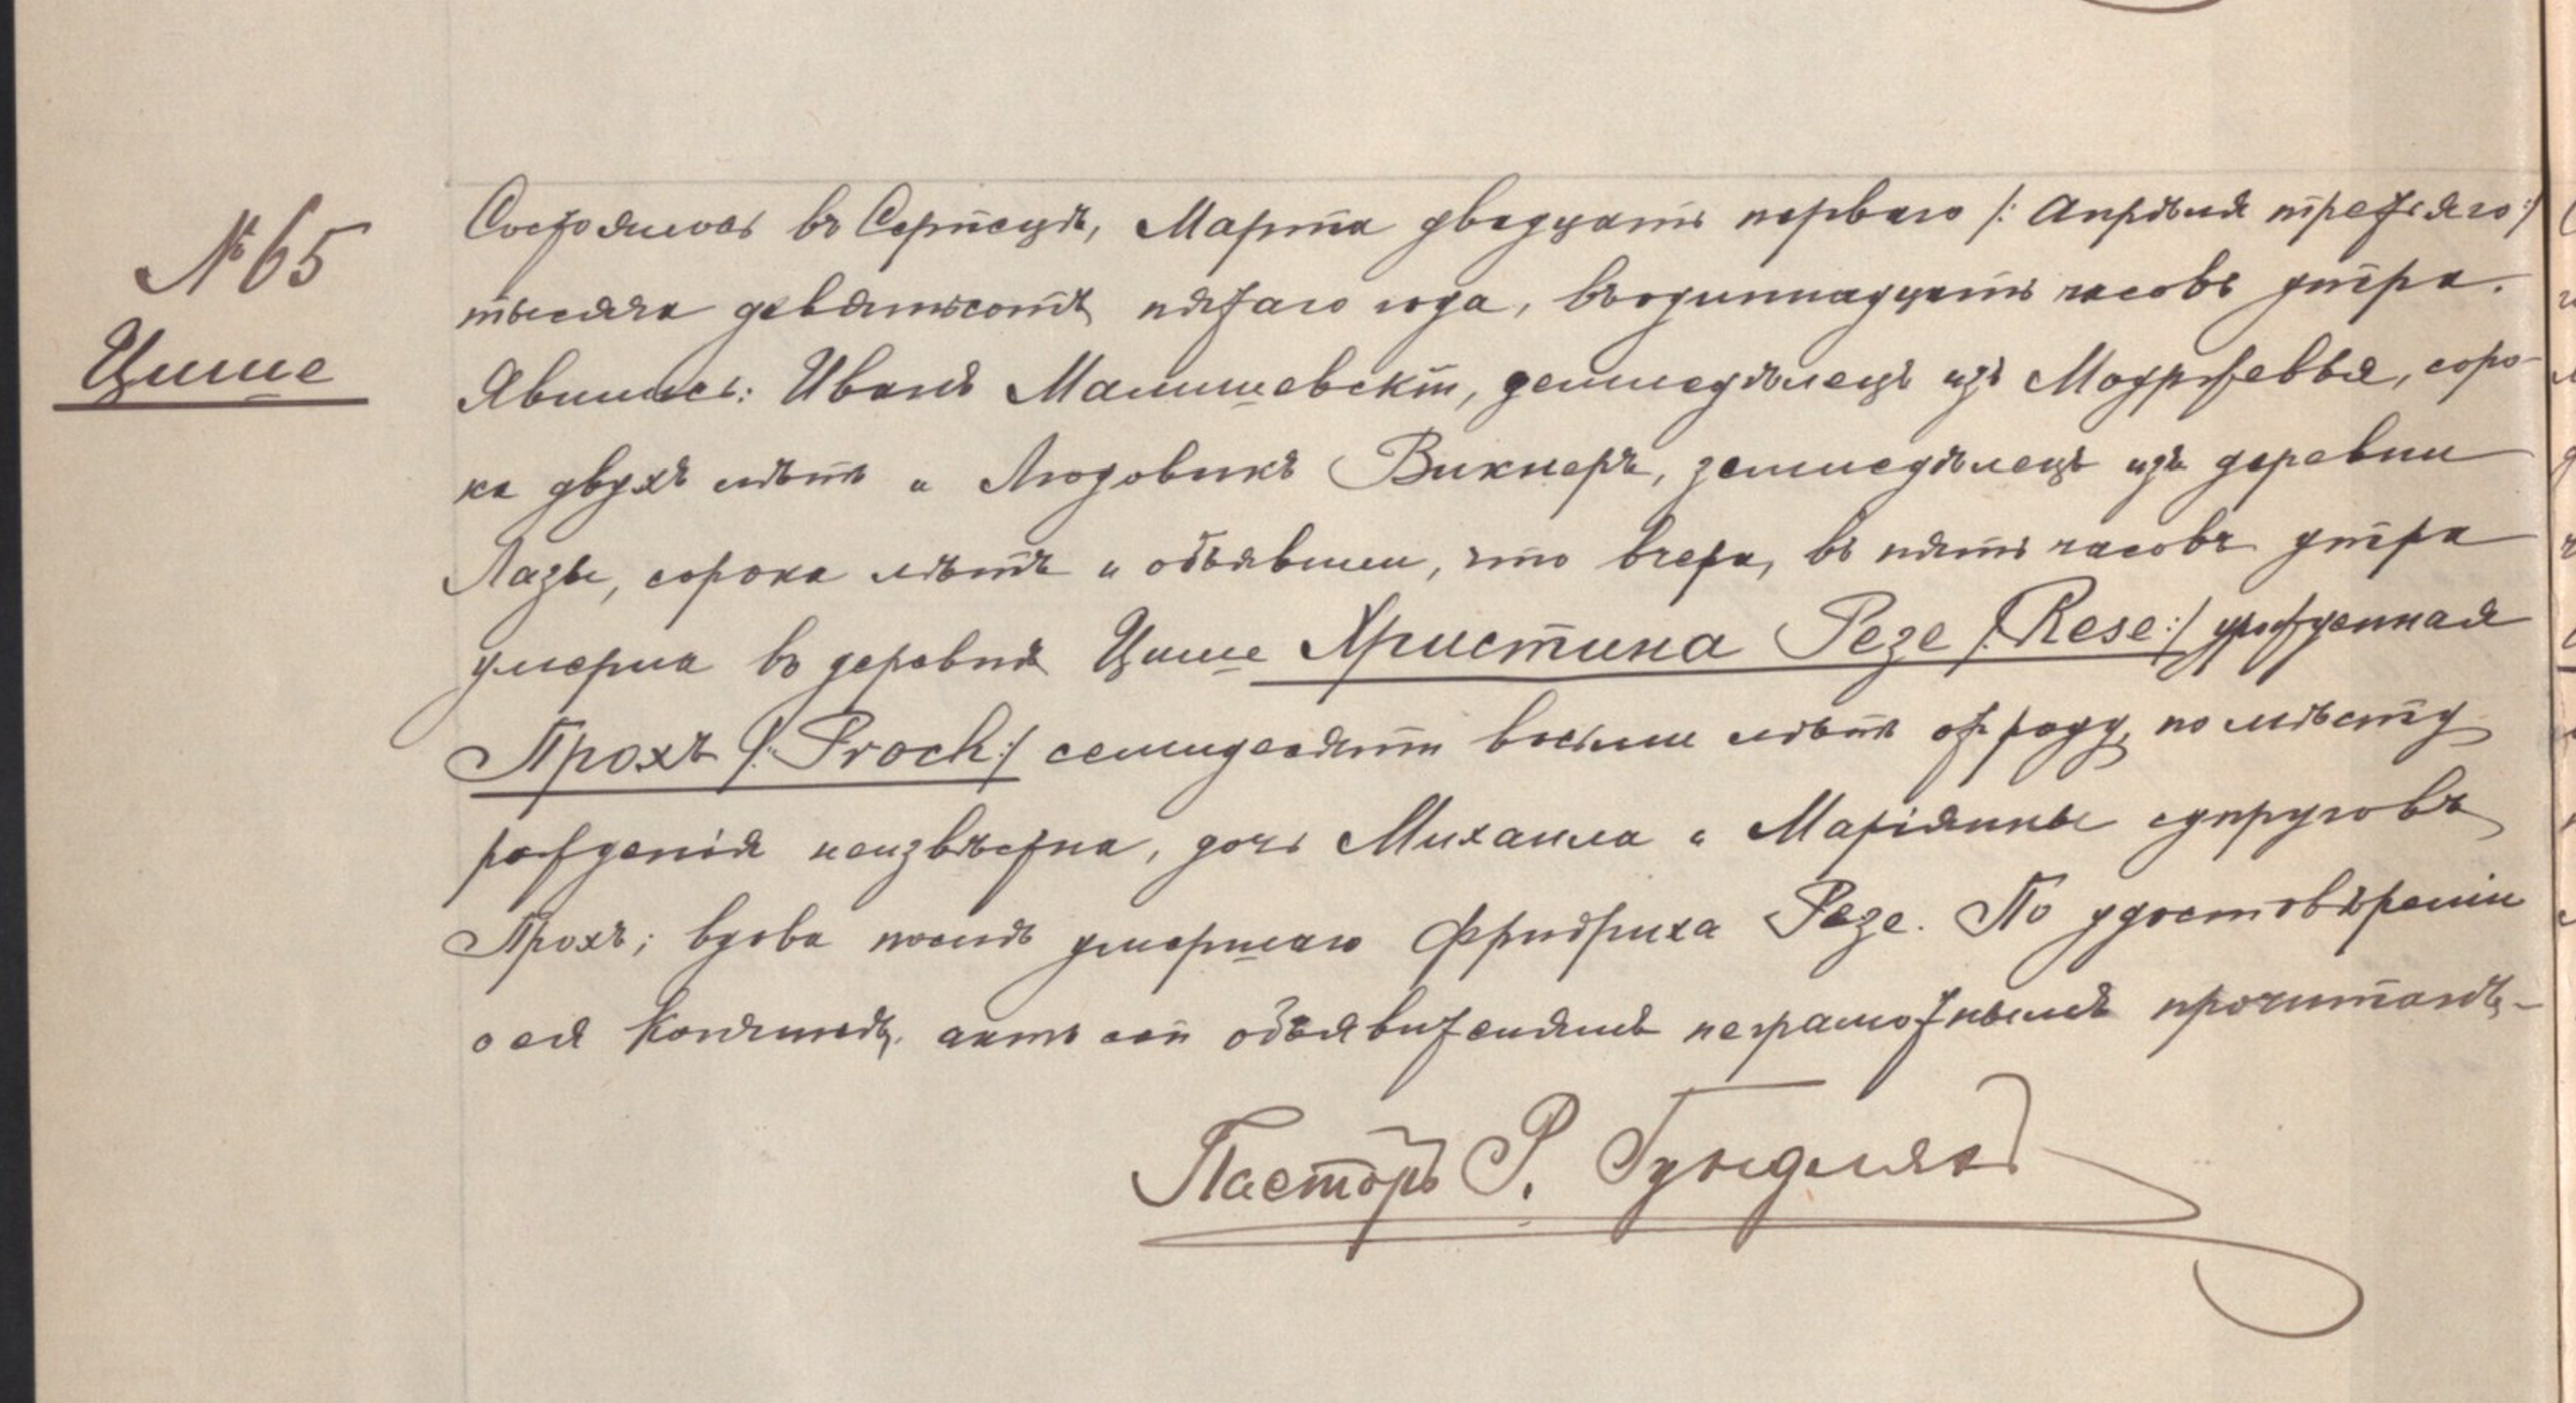 № 65
Цише
Состоялось въ Серпецѣ, Марта двадцать перваго /: Апрѣля третьяго :/
тысяча девятьсотъ пятаго года, въ одиннадцать часовъ утра.
Явились: Иванъ Малишевскій, земледѣлецъ изъ Модржевья, соро-
ка двухъ лѣтъ и Людовикъ Викнеръ, земледѣлецъ изъ деревни
Лазы, сорока лѣтъ и объявили, что вчера, въ пять часовъ утра
умерла въ деревнѣ Цише Христина Резе /: Rese :/ урожденная
Прохъ /: Proch :/ семидесяти восьми лѣтъ отъ роду, по мѣсту
рожденія неизвѣстна, дочь Михаила и Маріянны супруговъ
Прохъ; вдова послѣ умершаго Фридриха Резе. По удостовѣреніи
о ея кончинѣ, актъ сей объявителямъ неграмотнымъ прочитанъ.-
Пасторъ Р. Гундлахъ